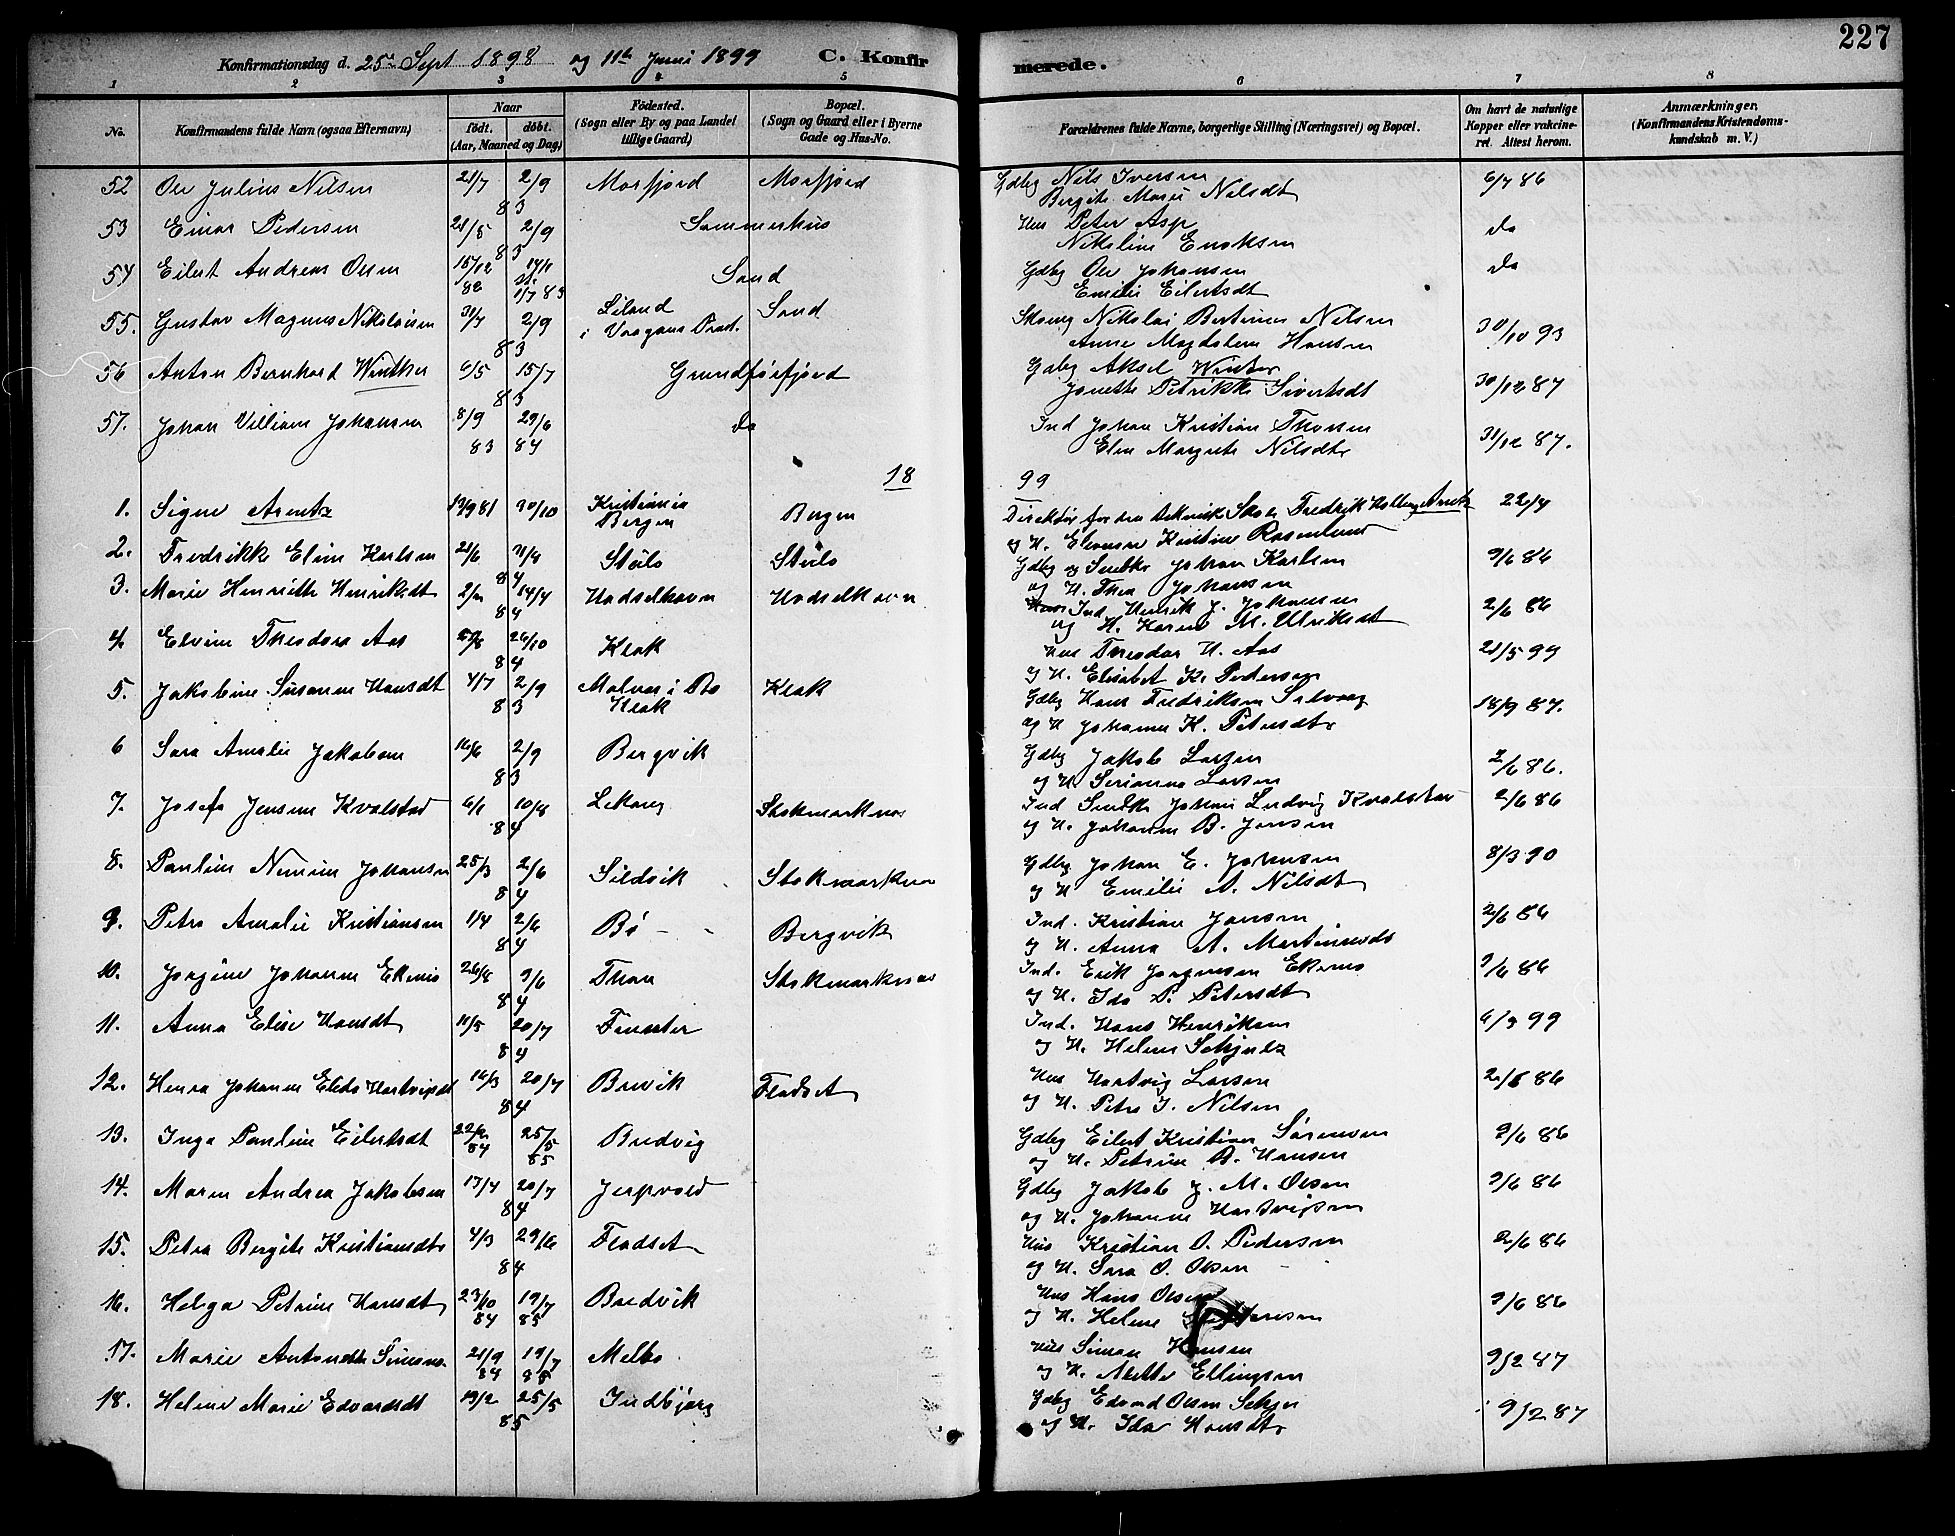 227
Konfirmationsdag d. 25de Sept 1898 og 11te Juni 1899 C. Konfirmerede.
1 2 3 4 5 6 7 8
No. Konfirmandens fulde Navn (ogsaa Efternavn) Naar födt. döbt. (Aar, Maaned og Dag) Födested. (Sogn eller By og paa Landet tillige Gaard) Bopæl. (Sogn og Gaard eller i Byerne Gade og Hus-No. Forældrenes fulde Navne, borgerlige Stilling (Næringsvei) og Bopæl. Om havt de naturlige Kopper eller vakcineret. Attest herom. Anmærkninger. (Konfirmandens Kristendomskundskab m. V.)
52 Ole Julius Nilsen 21/7 2/9 83 Morfjord Morfjord Gdbg Nils Iversen 6/7 86
Bergite Marie Nilsdt
53 Einar Pedersen 21/5 2/9 83 Sommerhus Hus Peter Asp do
Nikoline Enoksen
54 Eilert Andreas Olsen 15/12 82 Sand Gdbg Ole Johansen do
1/7 83 Emilie Eilertsdt
55. Gustav Magnus Nikolaisen 31/7 2/9 83 Liland i Vaagans Præst. Sand Nikolai Bertinus Nilsen 30/10 93
Anne Magdalena Hansen
56 Anton Bernhard Winther 6/5 15/7 83 Grundförfjord Gdbg Aksel Winter 30/12 87
Jonette Petrikke Sivertsdt
57. Johan Villiam Johansen 8/9 83 29/6 84 do Ind Johan Kristian Thorsen 31/12 87.
Elen Margrete Nilsdtr
18 99
1. Signe Arentz 13/9 81 30/10 Kristiania Bergen Bergen Direktör for den tekniske Skole Fredrik Holberg Arentz 22/4
og H. Elenore Kristine Rosenlund
2. Fredrikke Eline Karlsen 21/6 84 Stöilo Stöilo Gdbg og Smed Johan Karlsen 9/6 86
og H. Thea Johansen
3. Marie Henriette Henriksdt 14/4 84 Hadselhavn Hadselhavn Ind. Henrik J. Johansen 2/6 86
og H. Karen M. Ulriksdt
4. Elvine Theodora Aas 26/10 84 Klak Hus Theodor H. Aas 21/5 99
og H. Elisabet K. Pedersen
5. Jakobine Susanne Hansdt 4/7 2/9 83 Malnes i Bø Klak Klak Gdbg Hans Fredriksen 18/9 87.
og H Johanna K. Petersdtr
6 Sara Amalie Jakobsen 16/6 2/9 83 Bergvik Gdbg Jakob Larsen 2/6 86.
og H. Serianna Larsen
7. Josefa Jensine Kvalstad 6/1 10/8 84 Lekang Stokmarknes Ind Smed Johan Ludvig Kvalstad 2/6 86
og H. Johanna B. Jensen
8. Pauline Numine Johansen 25/3 2/6 84 Sildvik Stokmarknes Gdbg Johan E. Johansen 8/3 90
og H Emilie A. Nilsdt
9. Petra Amalie Kristiansen 1/4 2/6 84 Bö Bergvik Ind. Kristian Jansen 2/6 86
og H. Anna A.
10. Jorgine Johanne Ekrnes 26/8 9/6 84 Stokmarknes Ind. Erik Jorgensen Ekrnes 9/6 86
og H. Ida P. Petersdt
11. Anna Elise Hansdt 11/5 20/7 84 Ind. Hans Henriksen 6/3 99
og H. Helene Schjulz
12. Henra Johanne Hartvigsdt 16/3 20/7 84 Brevik Fladset Hus Hartvig Larsen 2/6 86
og H. Petra J. Nilsen
13. Inga Pauline Eilertsdt 84 25/5 85 Bredvig Gdbg Eilert Kristian Sörensen 9/6 86
og H. Petrine B. Hansen
14. Maren Andrea Jakobsen 17/4 20/7 84 Jerpvold Gdbg Jakob J. M. Olsen 9/6 86
og H. Johanne Hartvigsen
15. Petra Bergite Kristiansdtr 4/3 29/6 84 Fladset Hus Kristian O. Pedersen 2/6 86
og H. Sara O. Olsen
16. Helga Petrine Hansdt 23/10 84 19/7 85 Bredvik Hus Hans Olsen 9/6 86
og H. Helene
17. Marie Antonette 21/9 84 19/7 85 Melbo Hus Simon Hansen 9/2 87
og H. Alette Ellingsen
18. Helene Marie Edvardsdt 19/2 25/5 85 Indbjorg Gdbg Edvard Olsen 9/2 87
og H. Ida Hansdtr